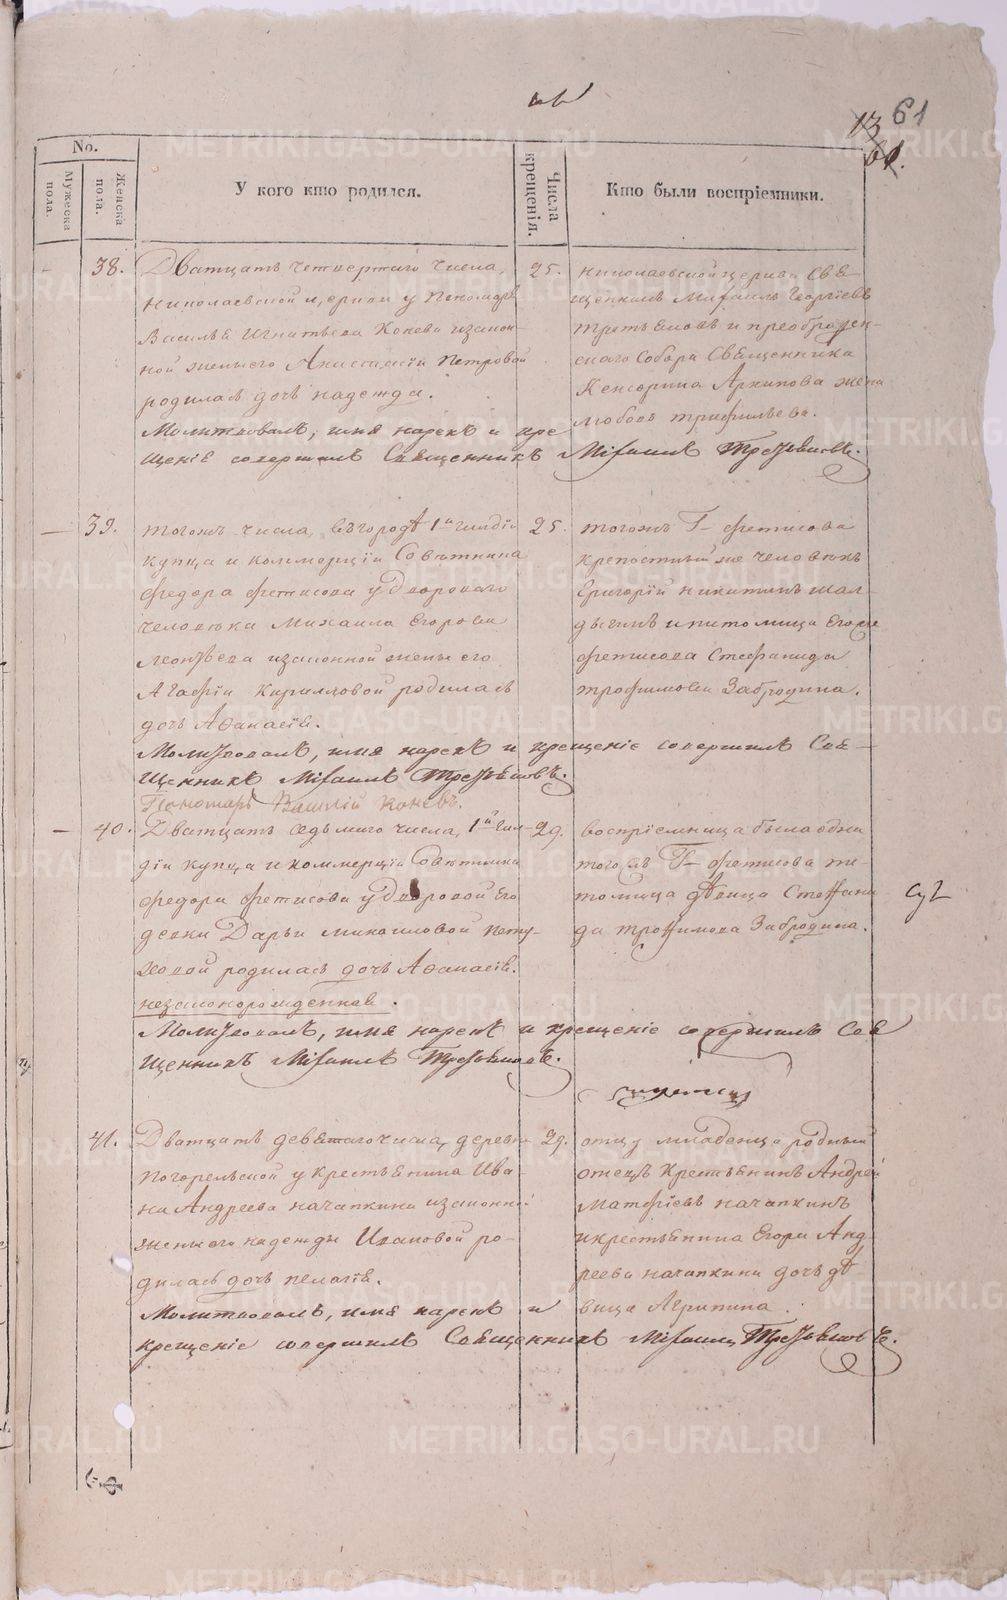 13 61
61.
No.
Мужеска пола.
Женска пола.
У кого кто родился.
Числа крещенія.
Кто были воспріемники.
38.
Дватцать четвертаго числа,
Николаевской церкви у пономаря
Василья Игнатьева Конева изакон-
ной жены его Анастасіи Петровой
родилась дочь надежда.
Молитвовалъ, имя нарекъ и кре
щеніе совершилъ Священникъ Михаилъ Третьяковъ.
25.
николаевской церкви Свя-
щенникъ Михаилъ Георгіевъ
Третьяковъ и преображен-
скаго Собора Священника
Кенсорина Архипова жена
любовь трифильева.
39.
тогожъ числа, въ городѣ 1й гилдіи
купца и коммерціи Совѣтника
Федора Фетисова у Дворового
человека Михаила Егорова
Леонтьева изаконной жены его
Агафіи Кириловой родилась
дочь Афанасія.
Молитвовалъ, имя нарекъ и крещеніе совершилъ Свя-
щенникъ Михаилъ Третьяковъ.
Пономарь Василій Коневъ.
25.
тогожъ Г. Фетисова
крепостный же человѣкъ
Григорій никитинъ шал-
дыгинъ и питомица Егора
Фетисова Стефанида
трофимова Забродина.
40.
Дватцать седьмаго числа, 1й гил-
діи купца и коммерціи Совѣтника
Федора Фетисова у Дворовой его
девки Дарьи михаиловой Пету-
ховой родилась дочь Афанасія.
незаконорожденная.
Молитвовалъ, имя нарекъ и крещеніе совершилъ Свя
щенникъ Михаилъ Третьяковъ.
29.
воспріемница была одна
того жъ Г. Фетисова пи-
томица дѣвица Стефани
да трофимова Забродина.
41.
Дватцать девятаго числа, деревни
Погорельской у крестьянина Ива-
на Андреева начапкина изаконной
жены его надежды Ивановой ро-
дилась дочь пелагія.
Молитвовалъ, имя нарекъ и
крещеніе совершилъ Священникъ Михаилъ Третьяковъ.
29.
отцу младенца родный
отецъ крестьянинъ Андрей
Матфіевъ начапкинъ
и крестьянина Егора Анд
реева начапкина дочь дѣ
вица Агрипина.
METRIKI.GASO-URAL.RU